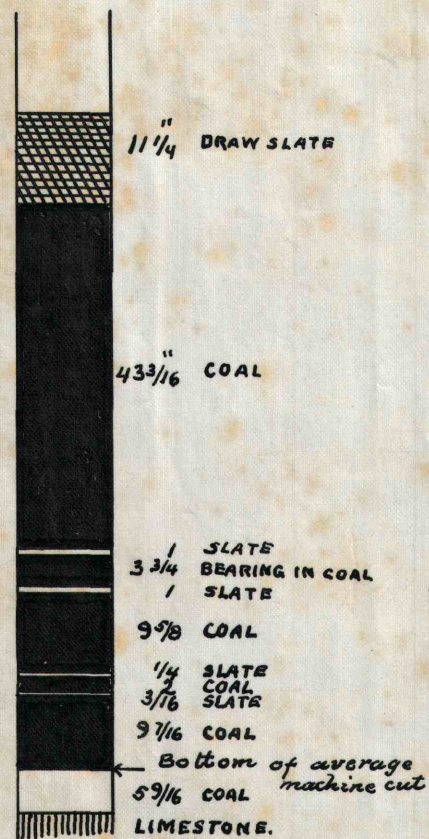 11 1/4" DRAW SLATE
43 3/16" COAL
1 SLATE
3 3/4 BEARING IN COAL
1 SLATE
9 5/8 COAL
1/4 SLATE
2 COAL
3/16 SLATE
9 7/16 COAL
Bottom of average
machine cut
5 9/16 COAL
LIMESTONE.